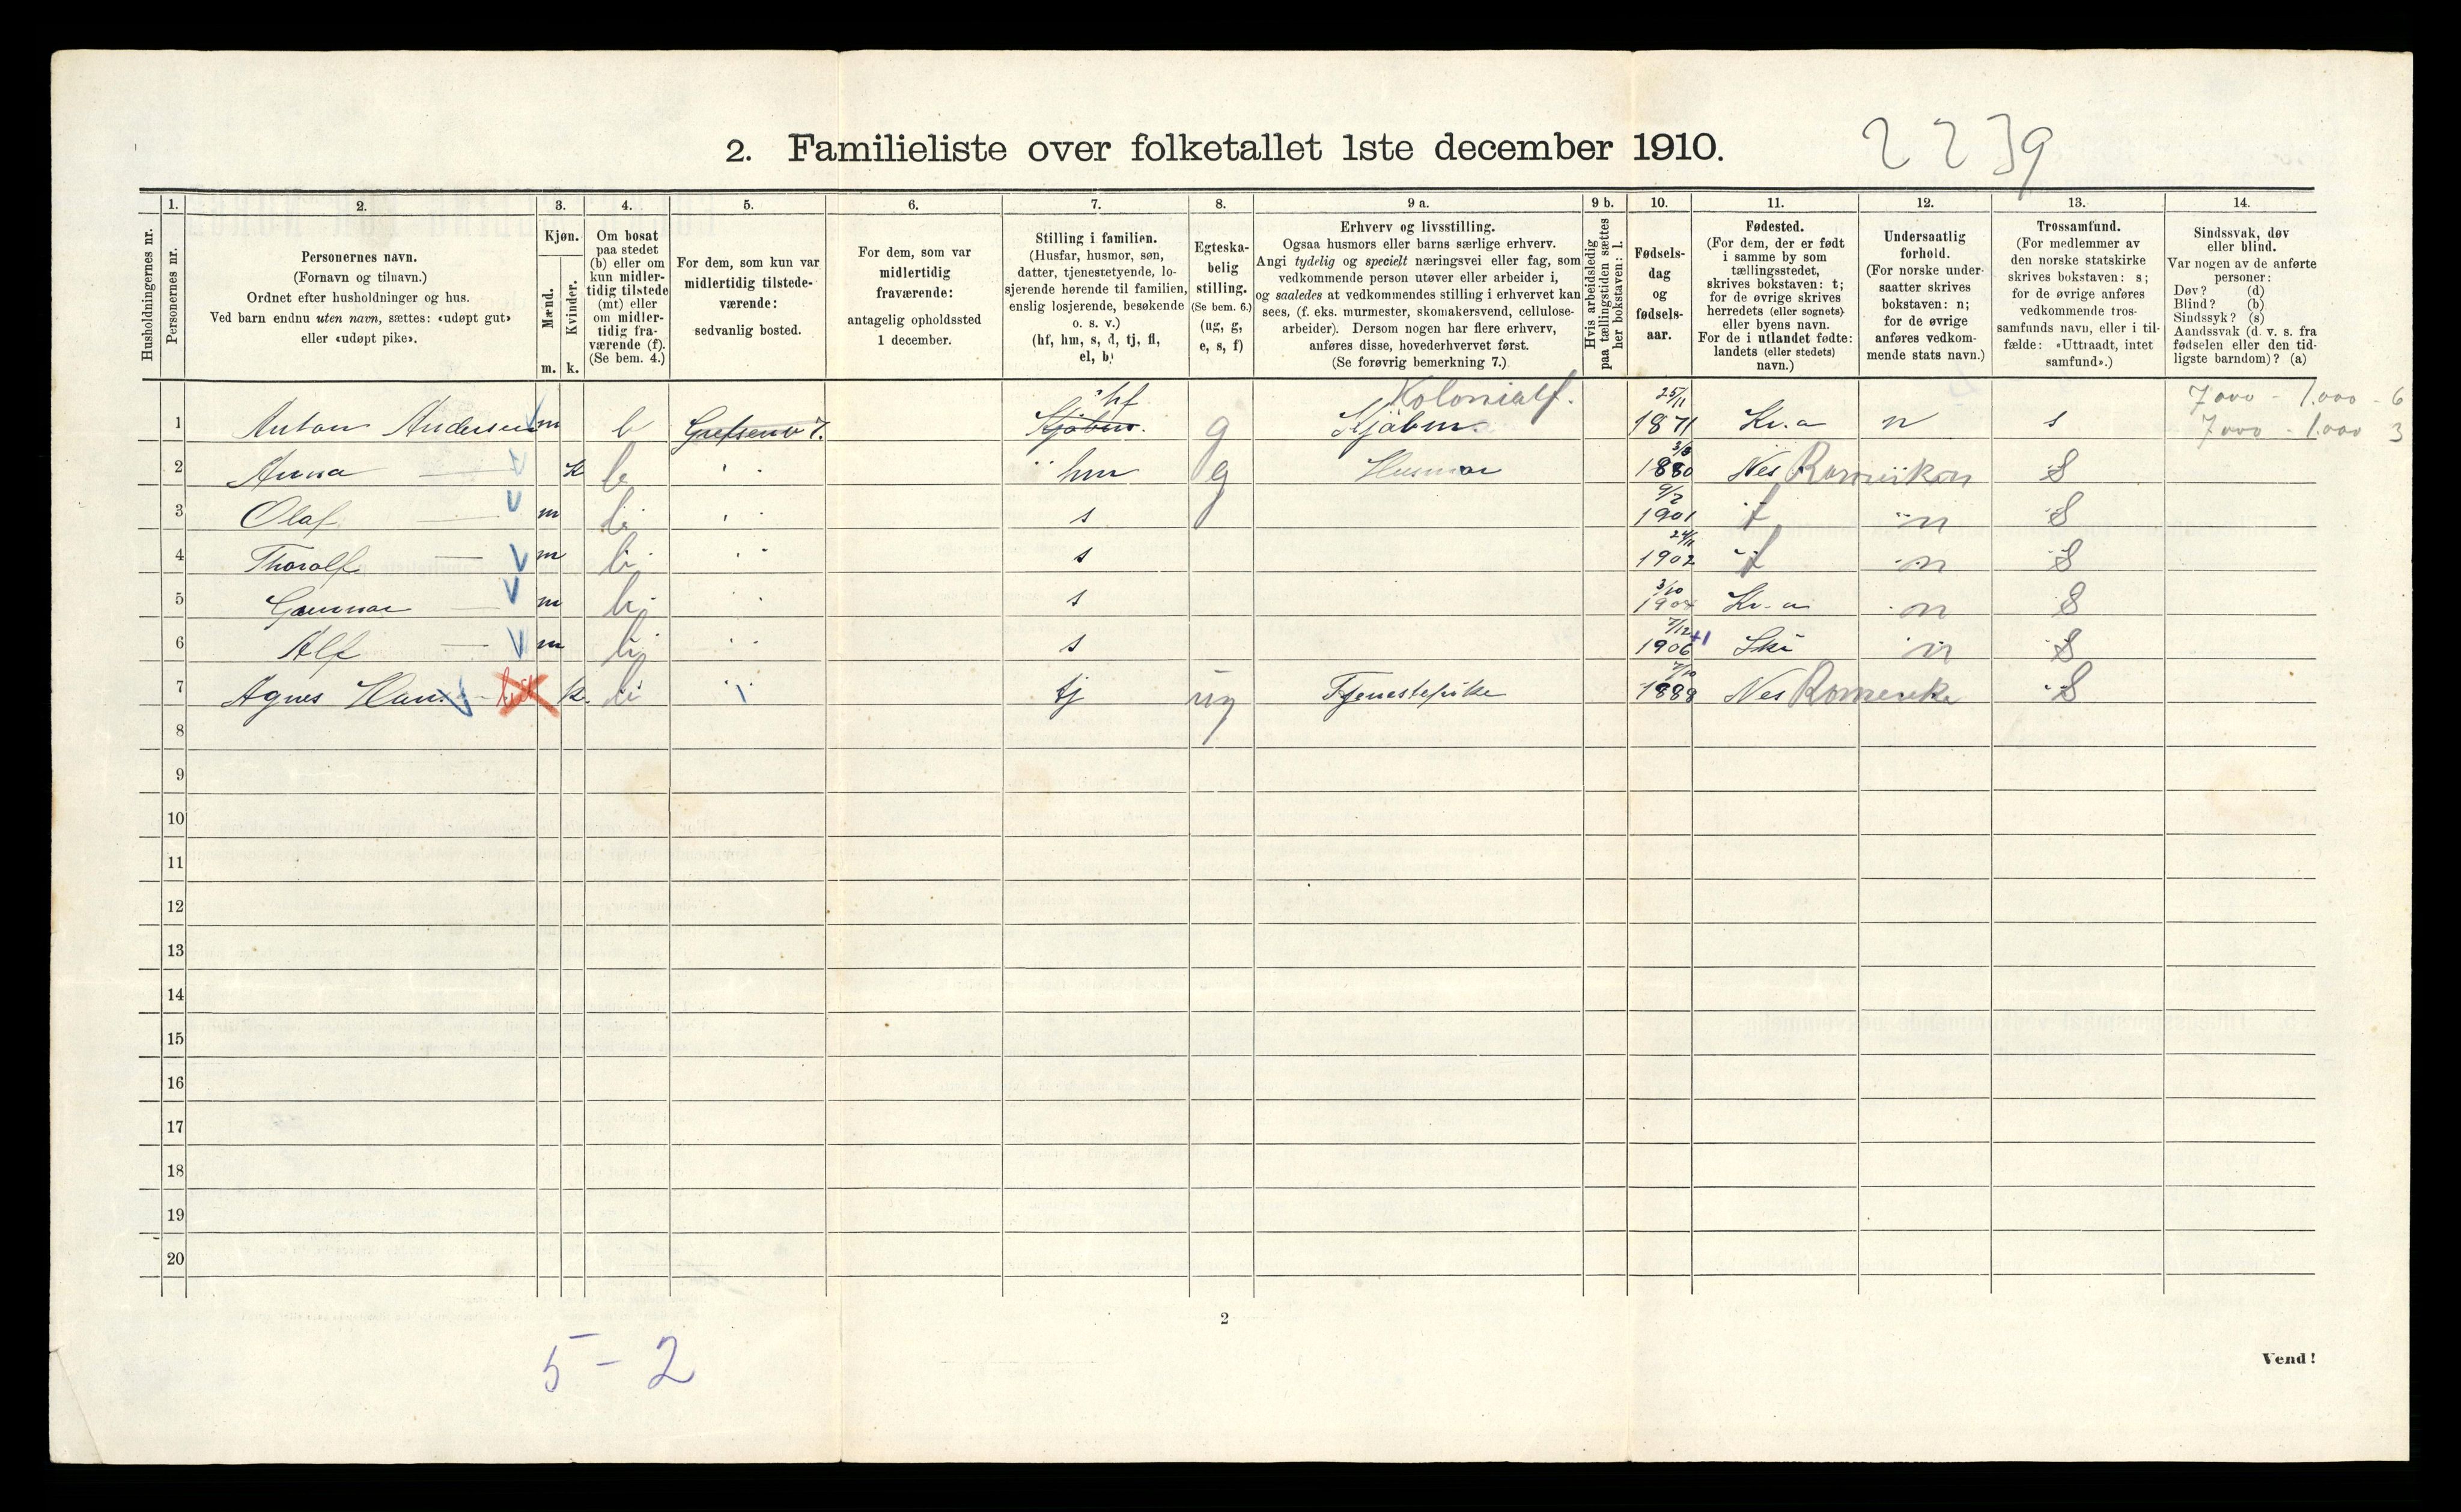 2239
2. Familieliste over folketallet 1ste december 1910.
Husholdningernes nr.
1. Personernes nr.
2. Personernes navn.
(Fornavn og tilnavn.)
Ordnet efter husholdninger og hus.
Ved barn endnu uten navn, sættes: «udøpt gut»
eller «udøpt pike».
3. Kjøn.
Mænd. Kvinder.
m. k.
4. Om bosat
paa stedet
(b) eller om
kun midler-
tidig tilstede
(mt) eller
om midler-
tidig fra-
værende (f).
(Se bem. 4.)
5. For dem, som kun var
midlertidig tilstede-
værende:
sedvanlig bosted.
6. For dem, som var
midlertidig
fraværende:
antagelig opholdssted
1 december.
7. Stilling i familien.
(Husfar, husmor, søn,
datter, tjenestetyende, lo-
sjerende hørende til familien,
enslig losjerende, besøkende
o. s. v.)
(hf, hm, s, d, tj, fl,
el, b)
8. Egteska-
belig
stilling.
(Se bem. 6.)
(ug, g,
e, s, f)
9 a. Erhverv og livsstilling.
Ogsaa husmors eller barns særlige erhverv.
Angi tydelig og specielt næringsvei eller fag, som
vedkommende person utøver eller arbeider i,
og saaledes at vedkommendes stilling i erhvervet kan
sees, (f. eks. murmester, skomakersvend, cellulose-
arbeider). Dersom nogen har flere erhverv,
anføres disse, hovederhvervet først.
(Se forøvrig bemerkning 7.)
9 b. Hvis arbeidsledig
paa tællingstiden sættes
her bokstaven: l.
10. Fødsels-
dag
og
fødsels-
aar.
11. Fødested.
(For dem, der er født
i samme by som
tællingsstedet,
skrives bokstaven: t;
for de øvrige skrives
herredets (eller sognets)
eller byens navn.
For de i utlandet fødte:
landets (eller stedets)
navn.)
12. Undersaatlig
forhold.
(For norske under-
saatter skrives
bokstaven: n;
for de øvrige
anføres vedkom-
mende stats navn.)
13. Trossamfund.
(For medlemmer av
den norske statskirke
skrives bokstaven: s;
for de øvrige anføres
vedkommende tros-
samfunds navn, eller i til-
fælde: «Uttraadt, intet
samfund».)
14. Sindssvak, døv
eller blind.
Var nogen av de anførte
personer:
Døv? (d)
Blind? (b)
Sindssyk? (s)
Aandssvak (d. v. s. fra
fødselen eller den tid-
ligste barndom)? (a)
hf Kolonialf. 25/11 7000 - 1.000 - 6
1 Anton Andersen m b Grefsenv 7. Kjøbm. g Kjøbm. 1871 Kr.a n s 7000 - 1.000 3
2 Anna — k b " " hm g Husmor 3/8 1880 Nes Romeriken S
3 Olaf — m b " " s 9/2 1901 t n S
4 Thoralf — m b " " s 24/11 1902 t n S
5 Gunnar — m b " " s 3/10 1904 Kr.a n S
6 Alf — m b " " s 7/12 1906 +1 Ski n S
7 Agnes k. b tj ug Tjenestepike 7/10 1888 Nes Romerike S
8
9
10
11
12
13
14
15
16
17
18
19
20
2
5 - 2
Vend!